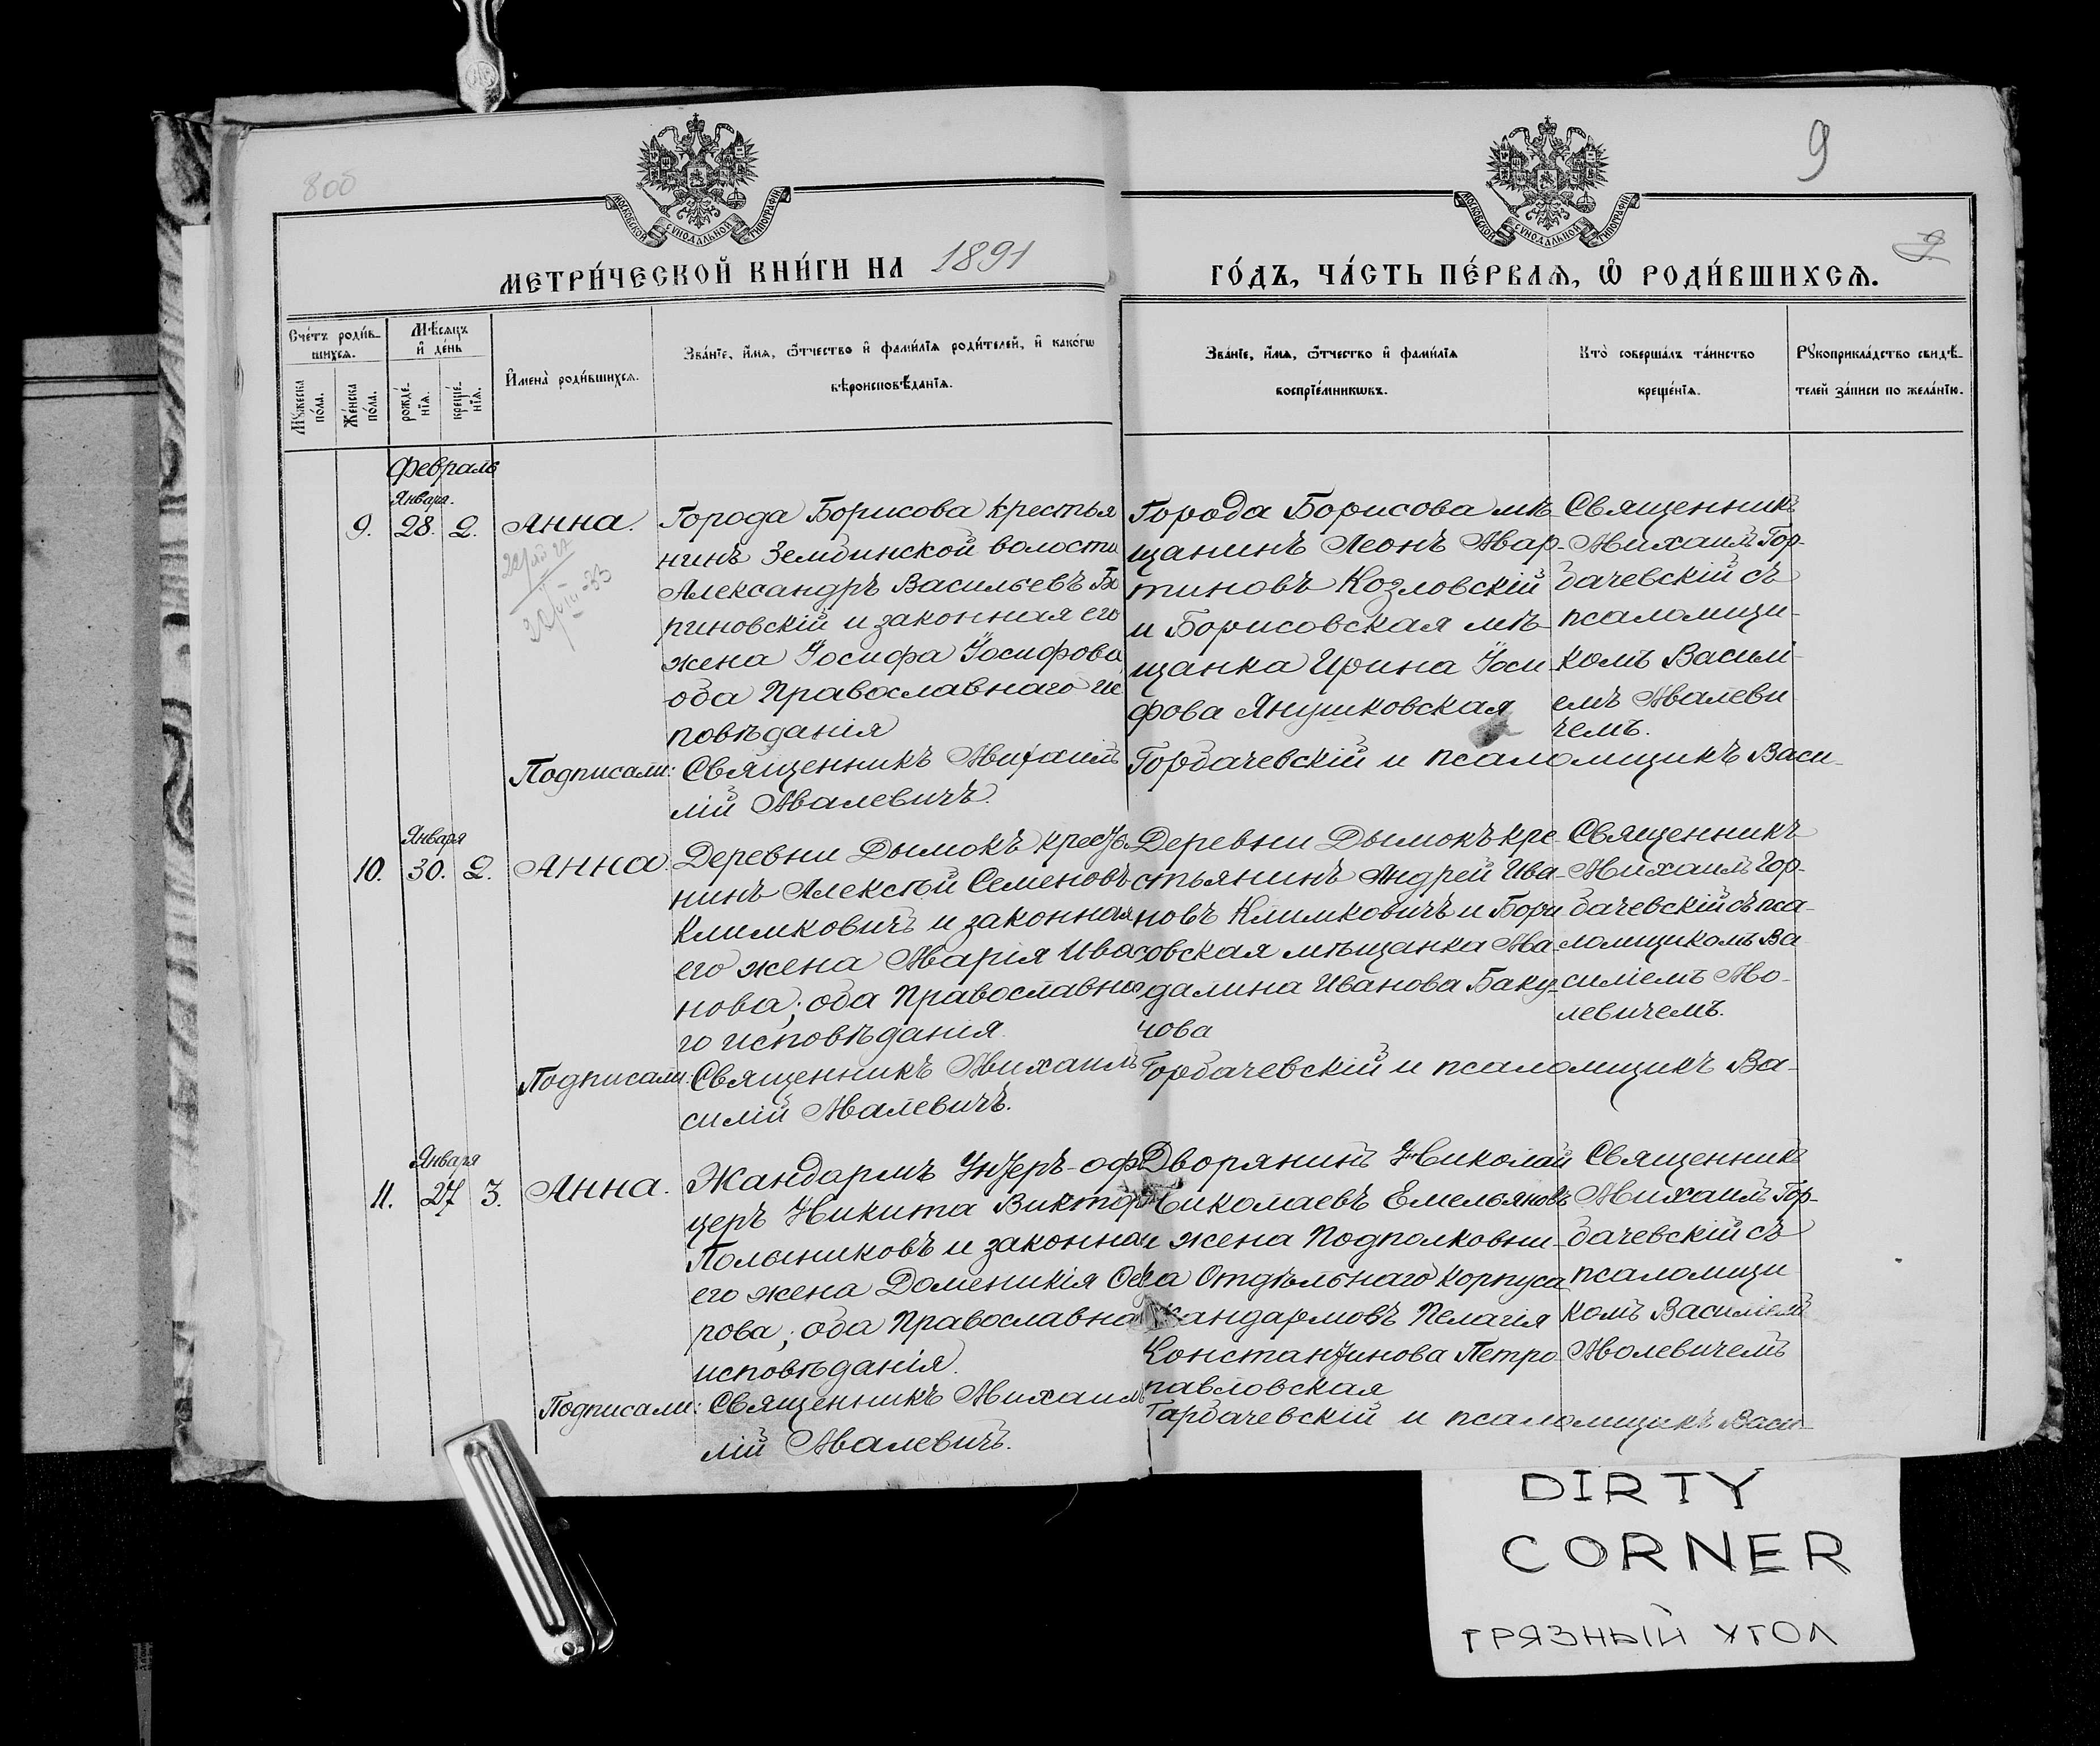 800
9
МОСКОВСКОЙ СѴНОДАЛЬНОЙ ТИПОГРАФІИ
МОСКОВСКОЙ СѴНОДАЛЬНОЙ ТИПОГРАФІИ
МЕТРИ́ЧЕСКОЙ КНИ́ГИ НА 1891
ГО́ДЪ, ЧА́СТЬ ПЕ́РВАѦ, Ѽ РОДИ́ВШИХСѦ.
Сче́тъ роди́в-
шихсѧ.
Мꙋжеска
по́ла.
Же́нска
по́ла.
Мѣ́сѧцъ
и҆ де́нь
рожде́-
нїѧ.
креще́-
нїѧ.
И҆мена̀ роди́вшихсѧ.
Зва́нїе, и҆́мѧ, ѻ҆́тчество и҆ фами́лїѧ роди́телей, и҆ како́гѡ
вѣроисповѣ́данїѧ.
Зва́нїе, и҆́мѧ, ѻ҆́тчество и҆ фами́лїѧ
воспрїе́мникѡвъ.
Кто̀ соверша́лъ та́инство
креще́нїѧ.
Рꙋкоприкла́дство свидѣ́-
телей за́писи по жела́нїю.
Февраль
Января.
9. 28. 2. Анна.
Города Борисова крестья
нинъ Зембинской волости
Александръ Васильевъ
риновскій и законная его
жена Іосифа Іосифова
оба Православнаго ис
повѣданія
Города Борисова мѣ-
щанинъ Леонъ Мар-
тиновъ Козловскій
и Борисовская мѣ-
щанка Ирина Іоси
фова Янушковская
Священникъ
Михаилъ Гор-
бачевскій съ
псаломщи-
комъ Васил̈і-
емъ Малеви
чемъ.
Подписали: Священникъ Михаилъ Горбачевскій и псаломщикъ Васи-
лій Малевичъ.
Января
10. 30. 2. Анна.
Деревни Дымокъ кресть
нинъ Алексѣй Семеновъ
Климковичъ и законная
его жена Марія Ива
нова; оба Православна
го исповѣданія.
Деревни Дымокъ кре-
стьянинъ Андрей Ива-
новъ Климковичъ и Бори
совская мѣщанка Ма-
далина Иванова Баку-
чова
Священникъ
Михаилъ Гор-
бачевскій съ пса-
ломщикомъ Ва
силіемъ Мо-
левичемъ.
Подписали: Священникъ Михаилъ Горбачевскій и псаломщикъ Ва-
силій Малевичъ.
Января
11. 27 3. Анна.
Жандармъ Унтеръ-офи
церъ Никита Викторовъ
Полыниковъ и законная
его жена Доменикія
рова; оба Православна
исповѣданія.
Дворянинъ Николай
Николаевъ Емельяновъ
и жена Подполковни-
ка Отдѣльнаго Корпуса
Жандармовъ Пелагія
Константинова Петро-
павловская
Священникъ
Михаилъ Гор-
бачевскій съ
псаломщи
комъ Василіемъ
Молевичемъ
Подписали: Священникъ Михаилъ Гарбачевскій и псаломщикъ Васи-
лій Малевичъ.
DIRTY
CORNER
ГРЯЗНЫЙ УГОЛ